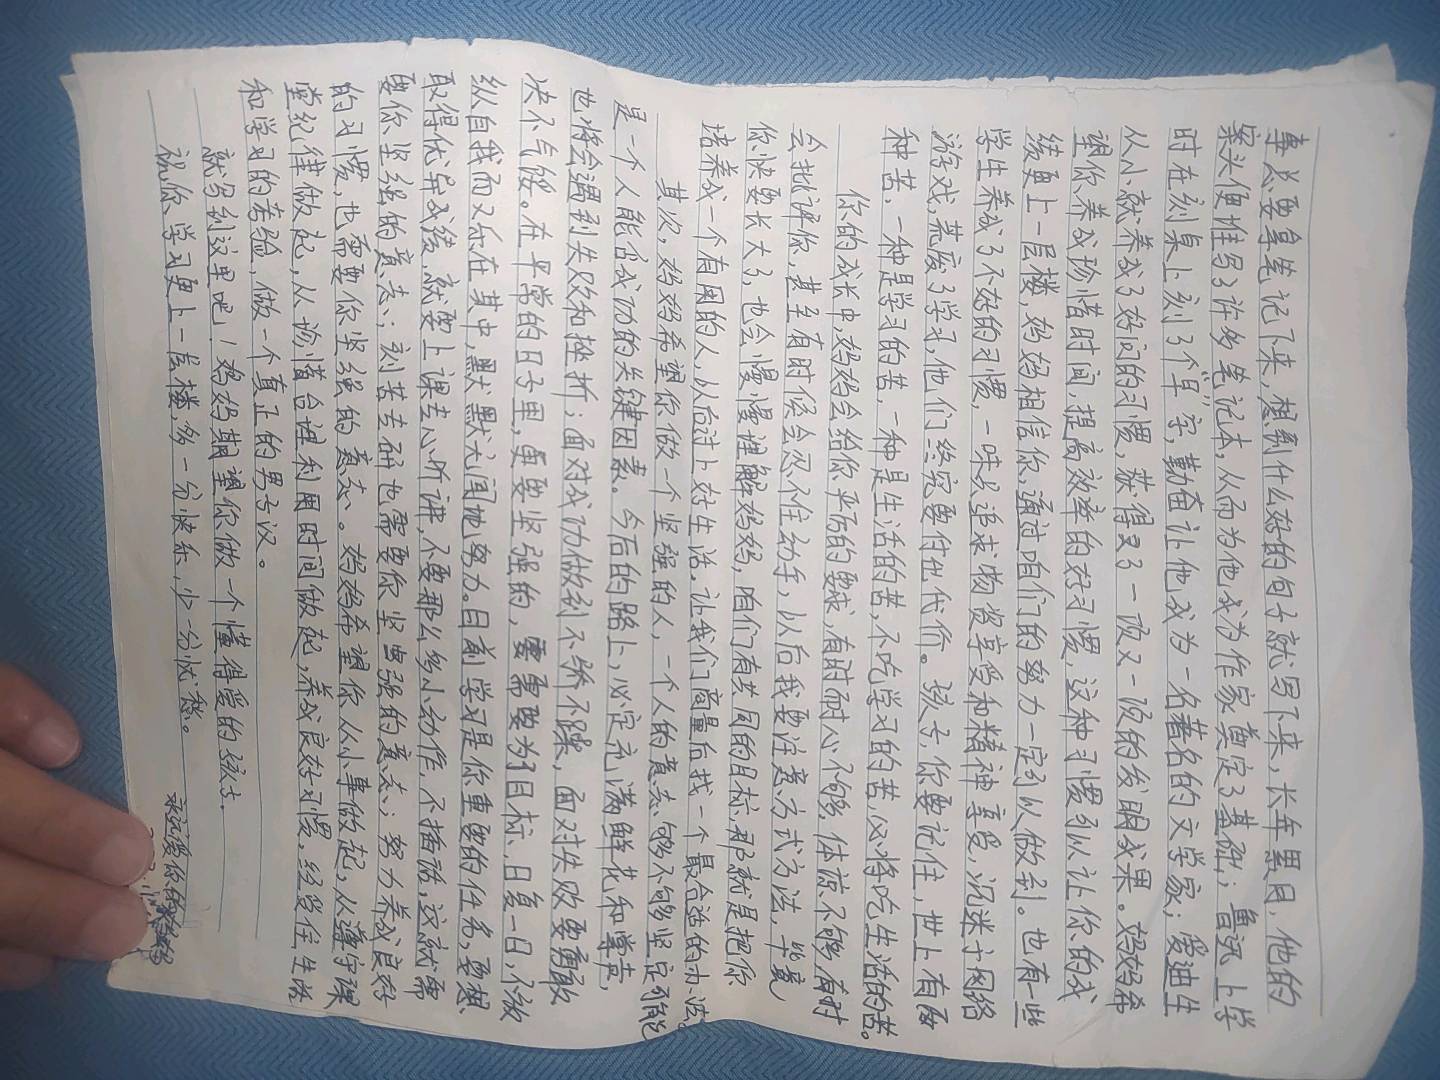 事总要拿笔记下来,想到什么好的句子就写下来,长年累月,他的
案头便堆写了许多笔记本,从而为他成为作家奠定了基础;鲁迅上学
时在刻桌上刻了个“早”字,勤奋让他成为一名著名的文学家;爱迪生
从小就养成了好问的习惯,获得又了一项又一项的发明成果。妈妈希
望你养成珍惜时间,提高效率的好习惯,这种习惯可以让你的成
绩更上一层楼,妈妈相信你,通过咱们的努力一定可以做到。也有一些
学生养成了不好的习惯,一味去追求物资享受和精神享受,沉迷于网络
游戏,荒废了学习,他们终究要付出代价。孩子,你要记住,世上有两
种苦,一种是学习的苦,一种是生活的苦,不吃学习的苦,必将吃生活的苦。
你的成长中,妈妈会给你严厉的要求,有时耐心不够,体谅不够,有时
会批评你,甚至有时候会忍不住动手,从后我要注意方式方法,毕竟
你快要长大了,也会慢慢理解妈妈,咱们有共同的目标,那就是把你
培养成一个有用的人,以后过上好生活,让我们商量后找一个最合适的办法。
其次,妈妈希望你做一个坚强的人,一个人的意志够不够坚定可能
是一个人能否成功的关键因素。今后的路上,必定充满鲜花和掌声,
也将会遇到失败和挫折;面对成功做到不骄不躁,面对失败要勇敢
决不气馁。在平常的日子里,更要坚强的,需要为了目标,日复一日,不放
纵自我而又乐在其中,默默无闻地努力。目前学习是你重要的任务,要想
取得优异成绩,就要上课专心听讲,不要那么多小动作,不插话,这就需
要你坚强的意志;刻苦专研也需要你坚强的意志;努力养成良好
的习惯,也需要你坚强的意志。妈妈希望你从小事做起,从遵守课
堂纪律做起,从珍惜合理利用时间做起,养成良好习惯,经受住生活
和学习的考验,做一个真正的男子汉。
就写到这里吧!妈妈期望你做一个懂得爱的孩子.
祝你学习更上一层楼,多一分快乐,少一分忧愁。
永远爱你的妈妈